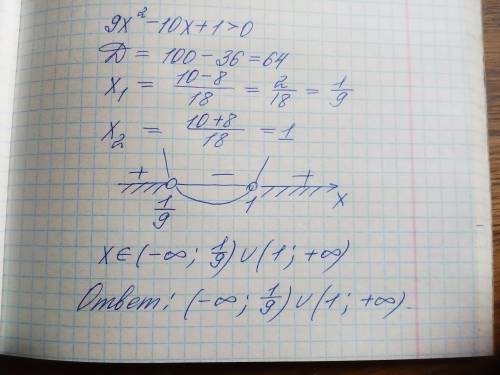 9x² - 10x + 1 > 0
D = 100 - 36 = 64
x₁ = (10-8)/18 = 2/18 = 1/9
x₂ = (10+8)/18 = 1
+ - +
1/9 1 x
x ∈ (-∞; 1/9) ∪ (1; +∞)
Ответ: (-∞; 1/9) ∪ (1; +∞).